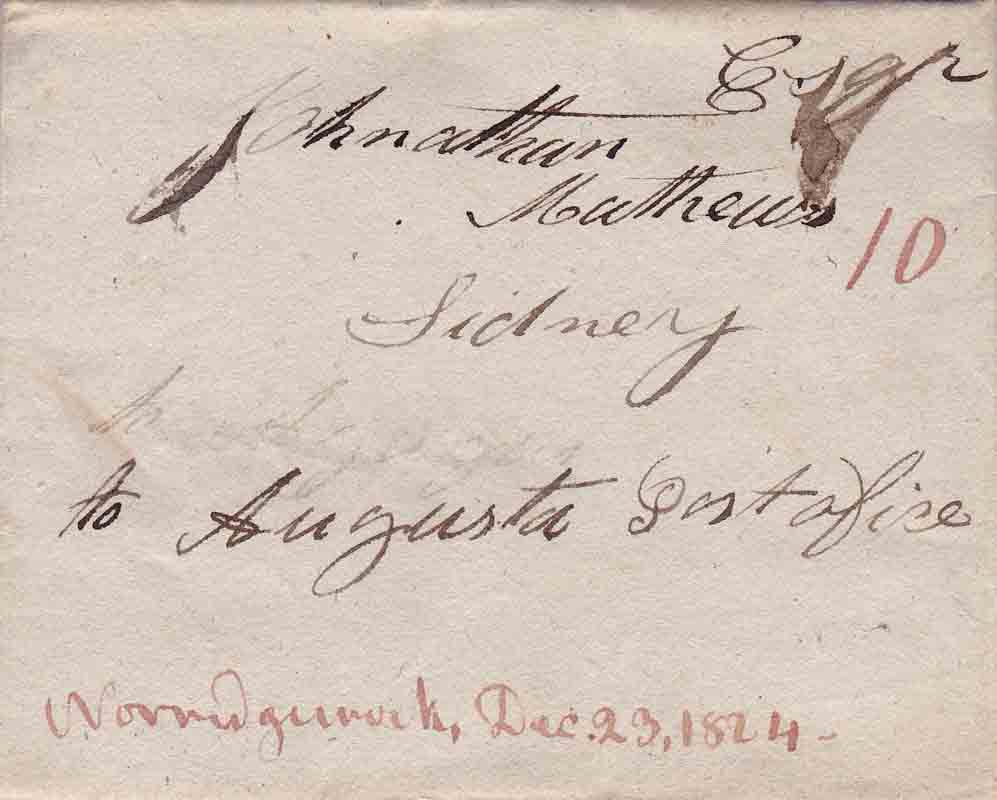 Johnathan Esqr
Mathews
10
Sidney
to Augusta Postofice
Norridgewock, Dec. 23, 1824.